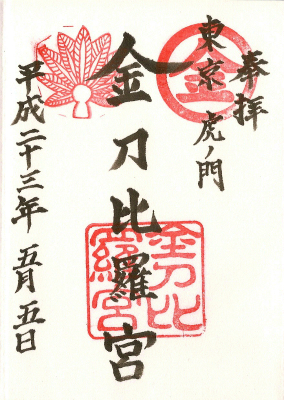 奉拝
東京虎ノ門
金
金刀比羅宮
金刀比
羅宮
平成二十三年 五月五日